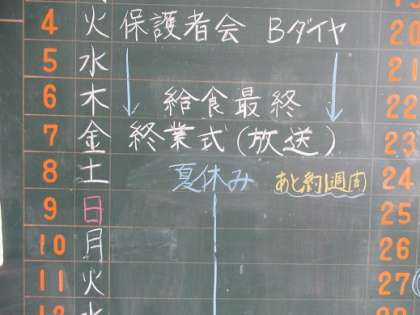 4 火 保護者会 Bダイヤ 20
5 水 21
6 木 給食最終 22
7 金 終業式(放送) 23
8 土 夏休み あと約1週間 24
9 日 25
10 月 26
11 火 27